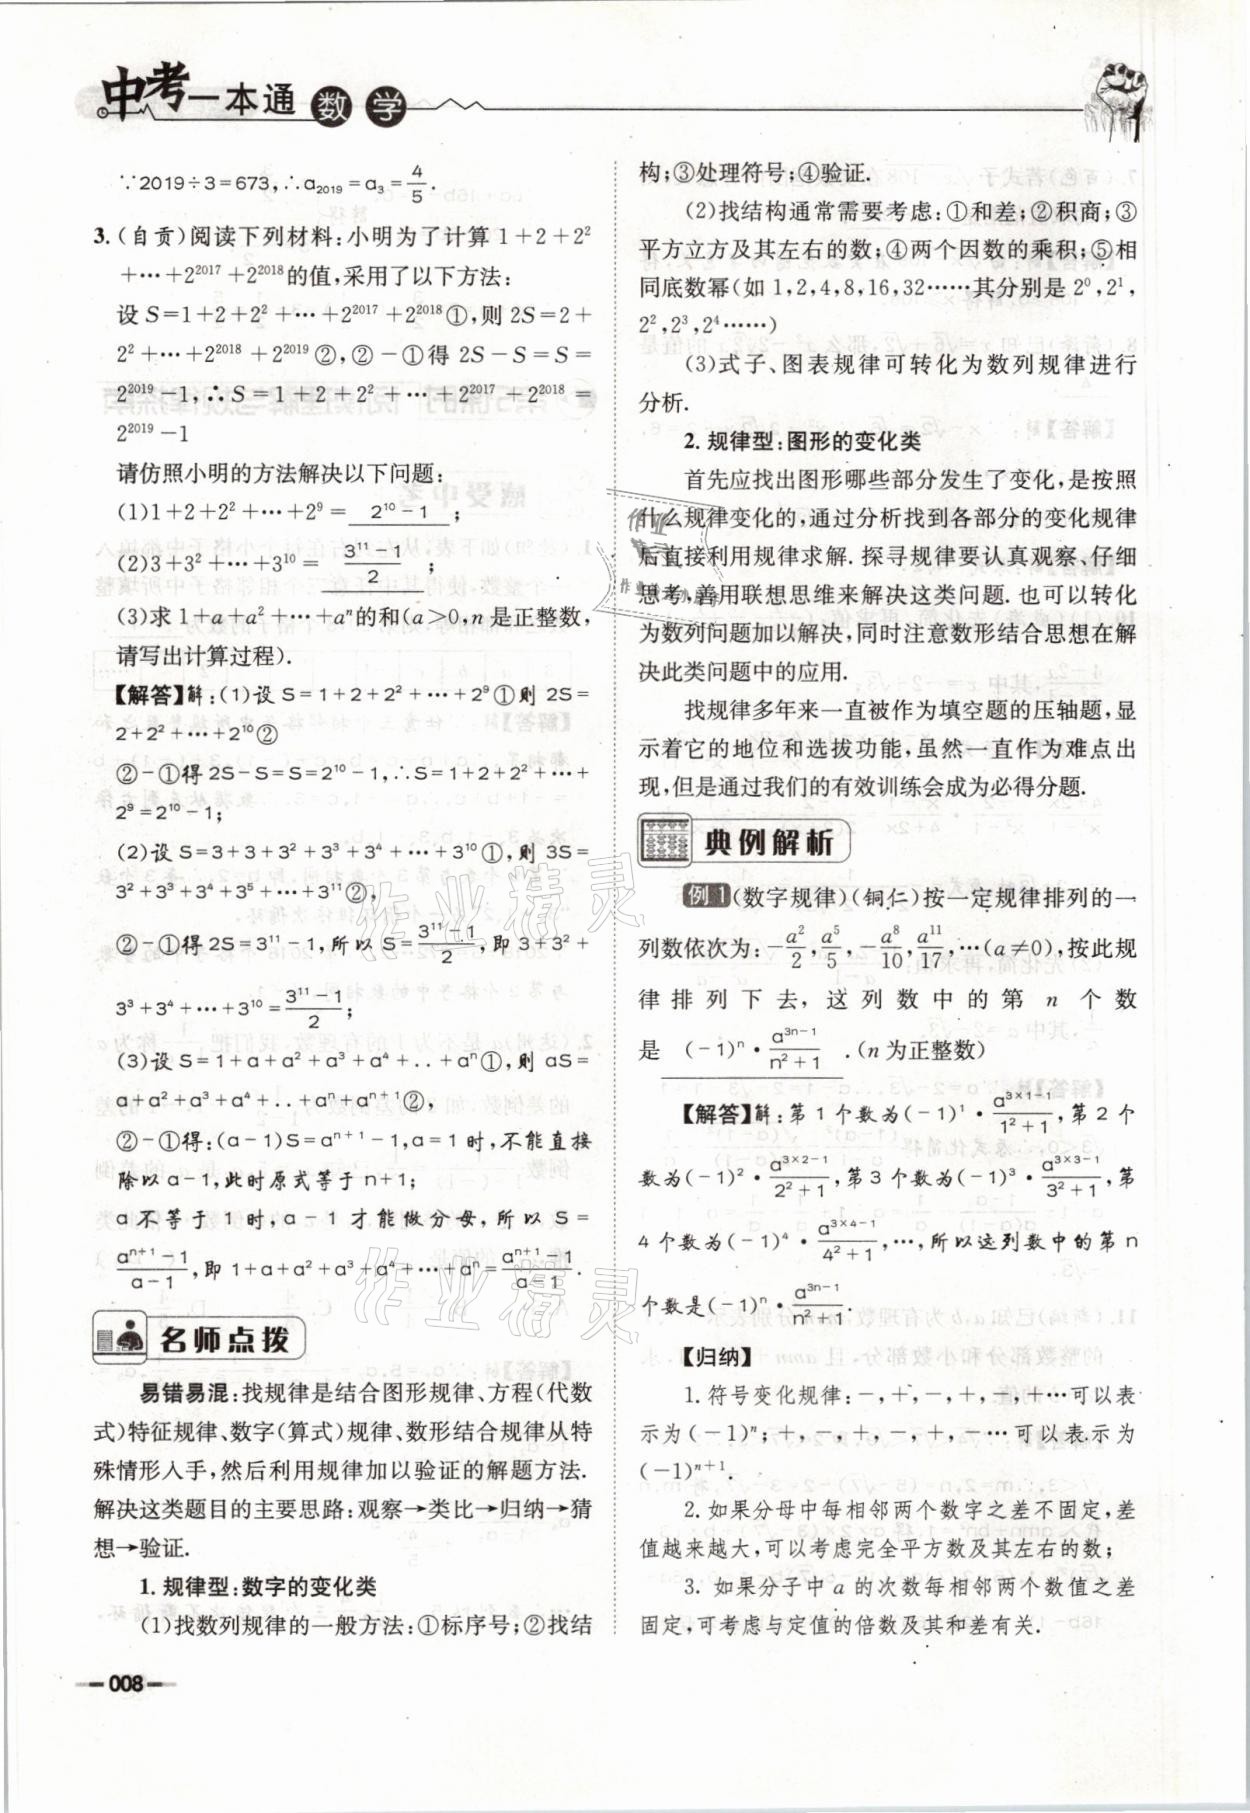 中考一本通 数学
∵2019÷3=673,∴a₂₀₁₉=a₃=4/5.
3.(自贡)阅读下列材料:小明为了计算1+2+2²
+…+2²⁰¹⁷+2²⁰¹⁸的值,采用了以下方法:
设S=1+2+2²+…+2²⁰¹⁷+2²⁰¹⁸①,则2S=2+
2²+…+2²⁰¹⁸+2²⁰¹⁹②,②-①得2S-S=S=
2²⁰¹⁹-1,∴S=1+2+2²+…+2²⁰¹⁷+2²⁰¹⁸=
2²⁰¹⁹-1
请仿照小明的方法解决以下问题:
(1)1+2+2²+…+2⁹= 2¹⁰-1 ;
(2)3+3²+…+3¹⁰= (3¹¹-1)/2 ;
(3)求1+a+a²+…+aⁿ的和(a>0,n是正整数,
请写出计算过程).
【解答】解:(1)设S=1+2+2²+…+2⁹①则2S=
2+2²+…+2¹⁰②
②-①得2S-S=S=2¹⁰-1,∴S=1+2+2²+…+
2⁹=2¹⁰-1;
(2)设S=3+3+3²+3³+3⁴+…+3¹⁰①,则3S=
3²+3³+3⁴+3⁵+…+3¹¹②,
②-①得2S=3¹¹-1,所以S=(3¹¹-1)/2,即3+3²+
3³+3⁴+…+3¹⁰=(3¹¹-1)/2;
(3)设S=1+a+a²+a³+a⁴+..+aⁿ①,则aS=
a+a²+a³+a⁴+..+aⁿ+aⁿ⁺¹②,
②-①得:(a-1)S=aⁿ⁺¹-1,a=1时,不能直接
除以a-1,此时原式等于n+1;
a不等于1时,a-1才能做分母,所以S=
(aⁿ⁺¹-1)/(a-1),即1+a+a²+a³+a⁴+…+aⁿ=(aⁿ⁺¹-1)/(a-1).
名师点拨
易错易混:找规律是结合图形规律、方程(代数
式)特征规律、数字(算式)规律、数形结合规律从特
殊情形入手,然后利用规律加以验证的解题方法.
解决这类题目的主要思路:观察→类比→归纳→猜
想→验证.
1.规律型:数字的变化类
(1)找数列规律的一般方法:①标序号;②找结
构;③处理符号;④验证.
(2)找结构通常需要考虑:①和差;②积商;③
平方立方及其左右的数;④两个因数的乘积;⑤相
同底数幂(如1,2,4,8,16,32……其分别是2⁰,2¹,
2²,2³,2⁴……)
(3)式子、图表规律可转化为数列规律进行
分析.
2.规律型:图形的变化类
首先应找出图形哪些部分发生了变化,是按照
什么规律变化的,通过分析找到各部分的变化规律
后直接利用规律求解.探寻规律要认真观察、仔细
思考,善用联想思维来解决这类问题.也可以转化
为数列问题加以解决,同时注意数形结合思想在解
决此类问题中的应用.
找规律多年来一直被作为填空题的压轴题,显
示着它的地位和选拔功能,虽然一直作为难点出
现,但是通过我们的有效训练会成为必得分题.
典例解析
例1(数字规律)(铜仁)按一定规律排列的一
列数依次为:-a²/2,a⁵/5,-a⁸/10,a¹¹/17,…(a≠0),按此规
律排列下去,这列数中的第n个数
是 (-1)ⁿ·a³ⁿ⁻¹/(n²+1) .(n为正整数)
【解答】解:第1个数为(-1)¹·a³ˣ¹⁻¹/(1²+1),第2个
数为(-1)²·a³ˣ²⁻¹/(2²+1),第3个数为(-1)³·a³ˣ³⁻¹/(3²+1),第
4个数为(-1)⁴·a³ˣ⁴⁻¹/(4²+1),…,所以这列数中的第n
个数是(-1)ⁿ·a³ⁿ⁻¹/(n²+1).
【归纳】
1.符号变化规律:-,+,-,+,-,+…可以表
示为(-1)ⁿ;+,-,+,-,+,-…可以表示为
(-1)ⁿ⁺¹.
2.如果分母中每相邻两个数字之差不固定,差
值越来越大,可以考虑完全平方数及其左右的数;
3.如果分子中a的次数每相邻两个数值之差
固定,可考虑与定值的倍数及其和差有关.
008
作业精灵
作业精灵